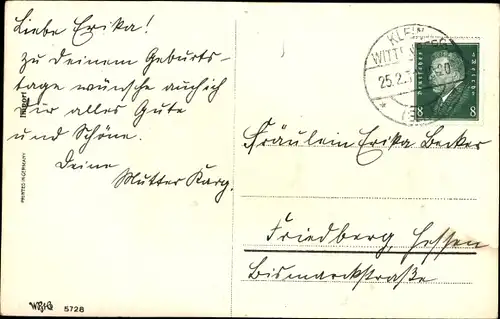 Liebe Erika!
zu Deinem Geburts-
tage wünsche auch ich
Dir alles Gute
und Schöne.
Deine
Mutter Karg.
Import
PRINTED IN GERMANY
5728
KLEIN
25.2.
8 8
Fräulein Erika Becker
Friedberg, Hessen
Bismarckstraße